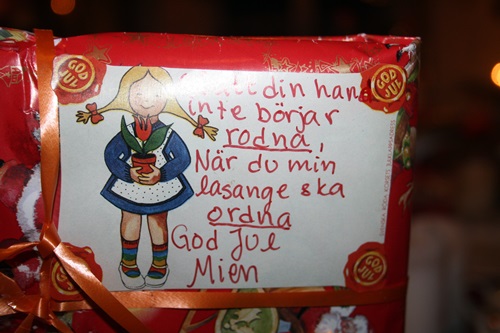 GOD JUL
GOD JUL
din han
inte börjar
rodna,
När du min
lasange ska
ordna
God Jul
Mien
GOD JUL
GOD JUL